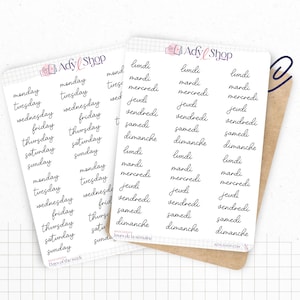 monday
tuesday
wednesday
friday
thursday
saturday
sunday
monday
tuesday
wednesday
friday
thursday
saturday
sunday
monday
tuesday
wednesday
friday
thursday
saturday
sunday
monday
tuesday
wednesday
friday
thursday
saturday
sunday
lundi
mardi
mercredi
jeudi
vendredi
samedi
dimanche
lundi
mardi
mercredi
jeudi
vendredi
samedi
dimanche
lundi
mardi
mercredi
jeudi
vendredi
samedi
dimanche
lundi
mardi
mercredi
jeudi
vendredi
samedi
dimanche
lundi
mardi
mercredi
jeudi
vendredi
samedi
dimanche
lundi
mardi
mercredi
jeudi
vendredi
samedi
dimanche